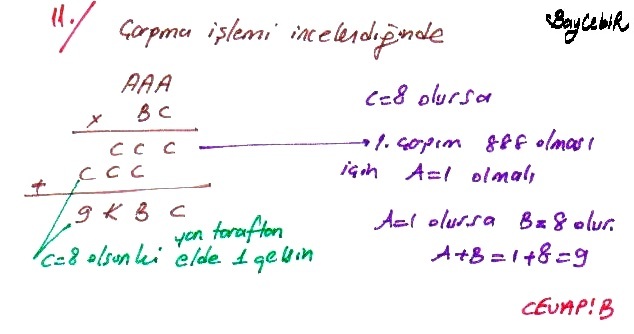 11./ Çarpma işlemi incelendiğinde
BayCebir
AAA
x BC
CCC → 1. çarpım 888 olması
+ CCC
için A=1 olmalı
9KBC
C=8 olursa
A=1 olursa B=8 olur.
A+B=1+8=9
yan taraftan
C=8 olsun ki elde 1 gelsin
CEVAP! B